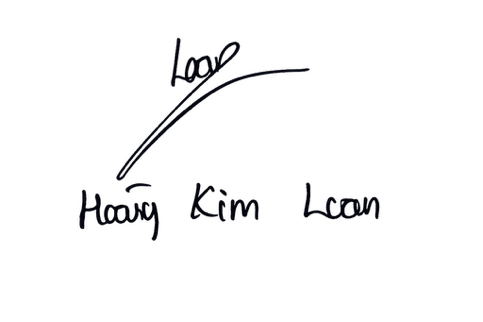 Loan
Hoàng Kim Loan